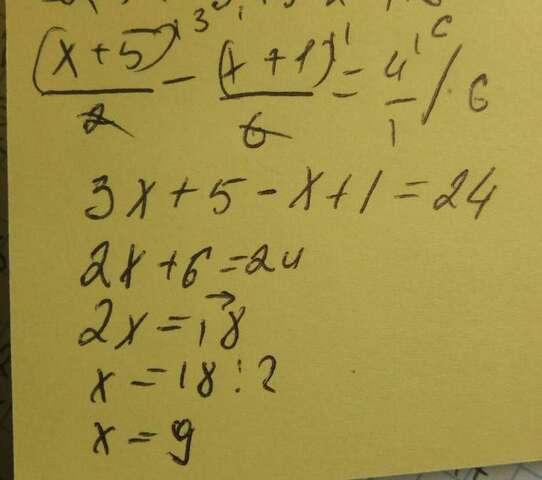 (x+5)^{13}/2 - (x+1)^{1}/6 = 4^{1c}/1 /· 6
3x+5-x+1=24
2x+6=24
2x=18
x=18:2
x=9